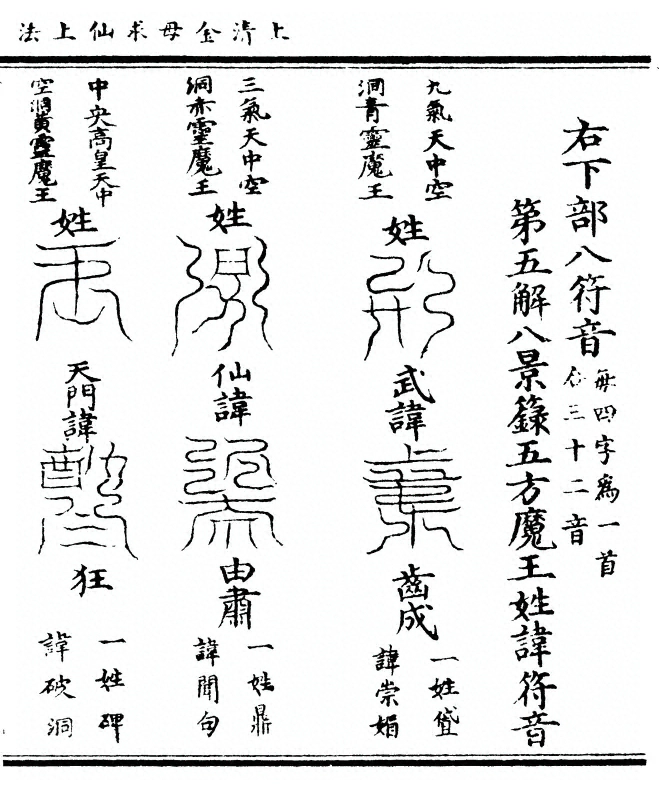 上清金母求仙上法
右下部八符音
每四字爲一首
合三十二音
第五解八景籙五方魔王姓諱符音
九氣天中空
洞青靈魔王
姓
武諱
齒成
一姓
諱崇娟
三氣天中空
洞赤靈魔王
姓
仙諱
由肅
一姓鼎
諱聞旬
中央高皇天中
空洞黃靈魔王
姓
天門諱
狂
一姓碑
諱破洞